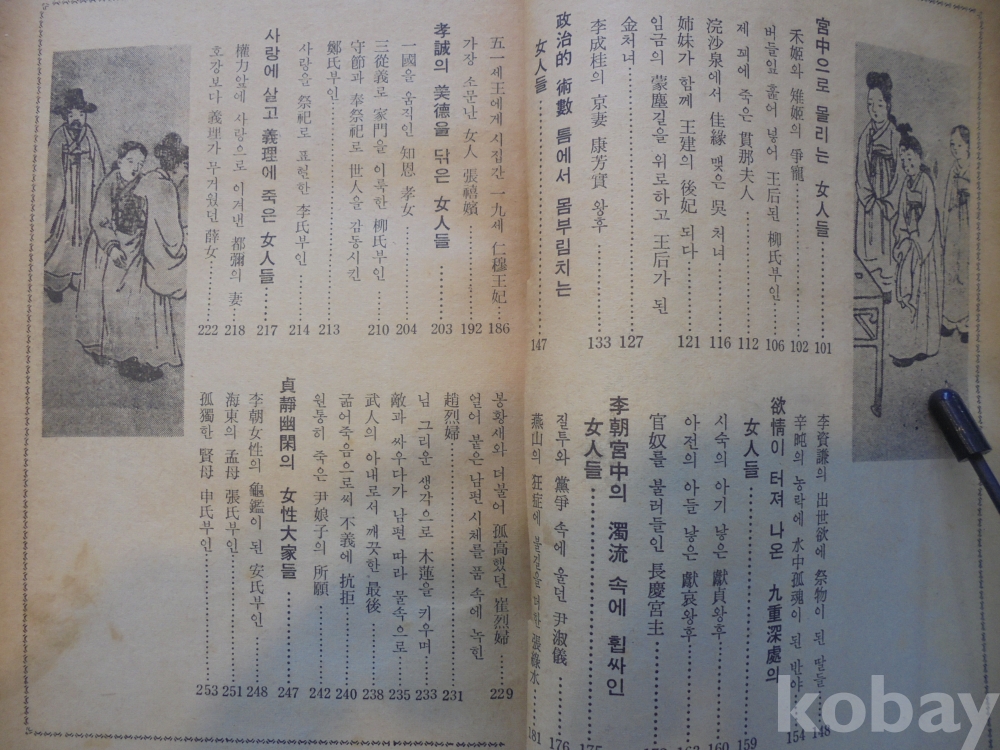 宮中으로 몰리는 女人들 101
禾姬와 雉姬의 爭寵 102
버들잎 훑어 넣어 王后된 柳氏부인 106
제 꾀에 죽은 貫那夫人 112
浣沙泉에서 佳緣 맺은 吳 처녀 116
姉妹가 함께 王建의 後妃 되다 121
임금의 蒙塵길을 위로하고 王后가 된
金처녀 127
李成桂의 京妻 康芳實 왕후 133
政治的 術數 틈에서 몸부림치는
女人들 147
李資謙의 出世欲에 祭物이 된 딸들 148
辛旽의 농락에 水中孤魂이 된 반야 154
欲情이 터져 나온 九重深處의
女人들 159
시숙의 아기 낳은 獻貞왕후 160
아전의 아들 낳은 獻哀왕후
官奴를 불러들인 長慶宮主
李朝宮中의 濁流 속에 휩싸인
女人들 175
질투와 黨爭 속에 울던 尹淑儀 176
燕山의 狂症에 불길을 더한 張綠水 181
五一세 王에게 시집간 一九세 仁穆王妃 186
가장 소문난 女人 張禧嬪 192
孝誠의 美德을 닦은 女人들 203
一國을 움직인 知恩 孝女 204
三從義로 家門을 이룩한 柳氏부인 210
守節과 奉祭祀로 世人을 감동시킨
鄭氏부인 213
사랑을 祭祀로 표현한 李氏부인 214
사랑에 살고 義理에 죽은 女人들 217
權力앞에 사랑으로 이겨낸 都彌의 妻 218
호강보다 義理가 무거웠던 薛女 222
봉황새와 더불어 孤高했던 崔烈婦 229
얼어 붙은 남편 시체를 품 속에 녹힌
趙烈婦 231
님 그리운 생각으로 木蓮을 키우며 233
敵과 싸우다가 남편 따라 물속으로 235
武人의 아내로서 깨끗한 最後 238
굶어죽음으로써 不義에 抗拒 240
원통히 죽은 尹娘子의 所願 242
貞靜幽閑의 女性大家들 247
李朝女性의 龜鑑이 된 安氏부인 248
海東의 孟母 張氏부인 251
孤獨한 賢母 申氏부인 253
kobay